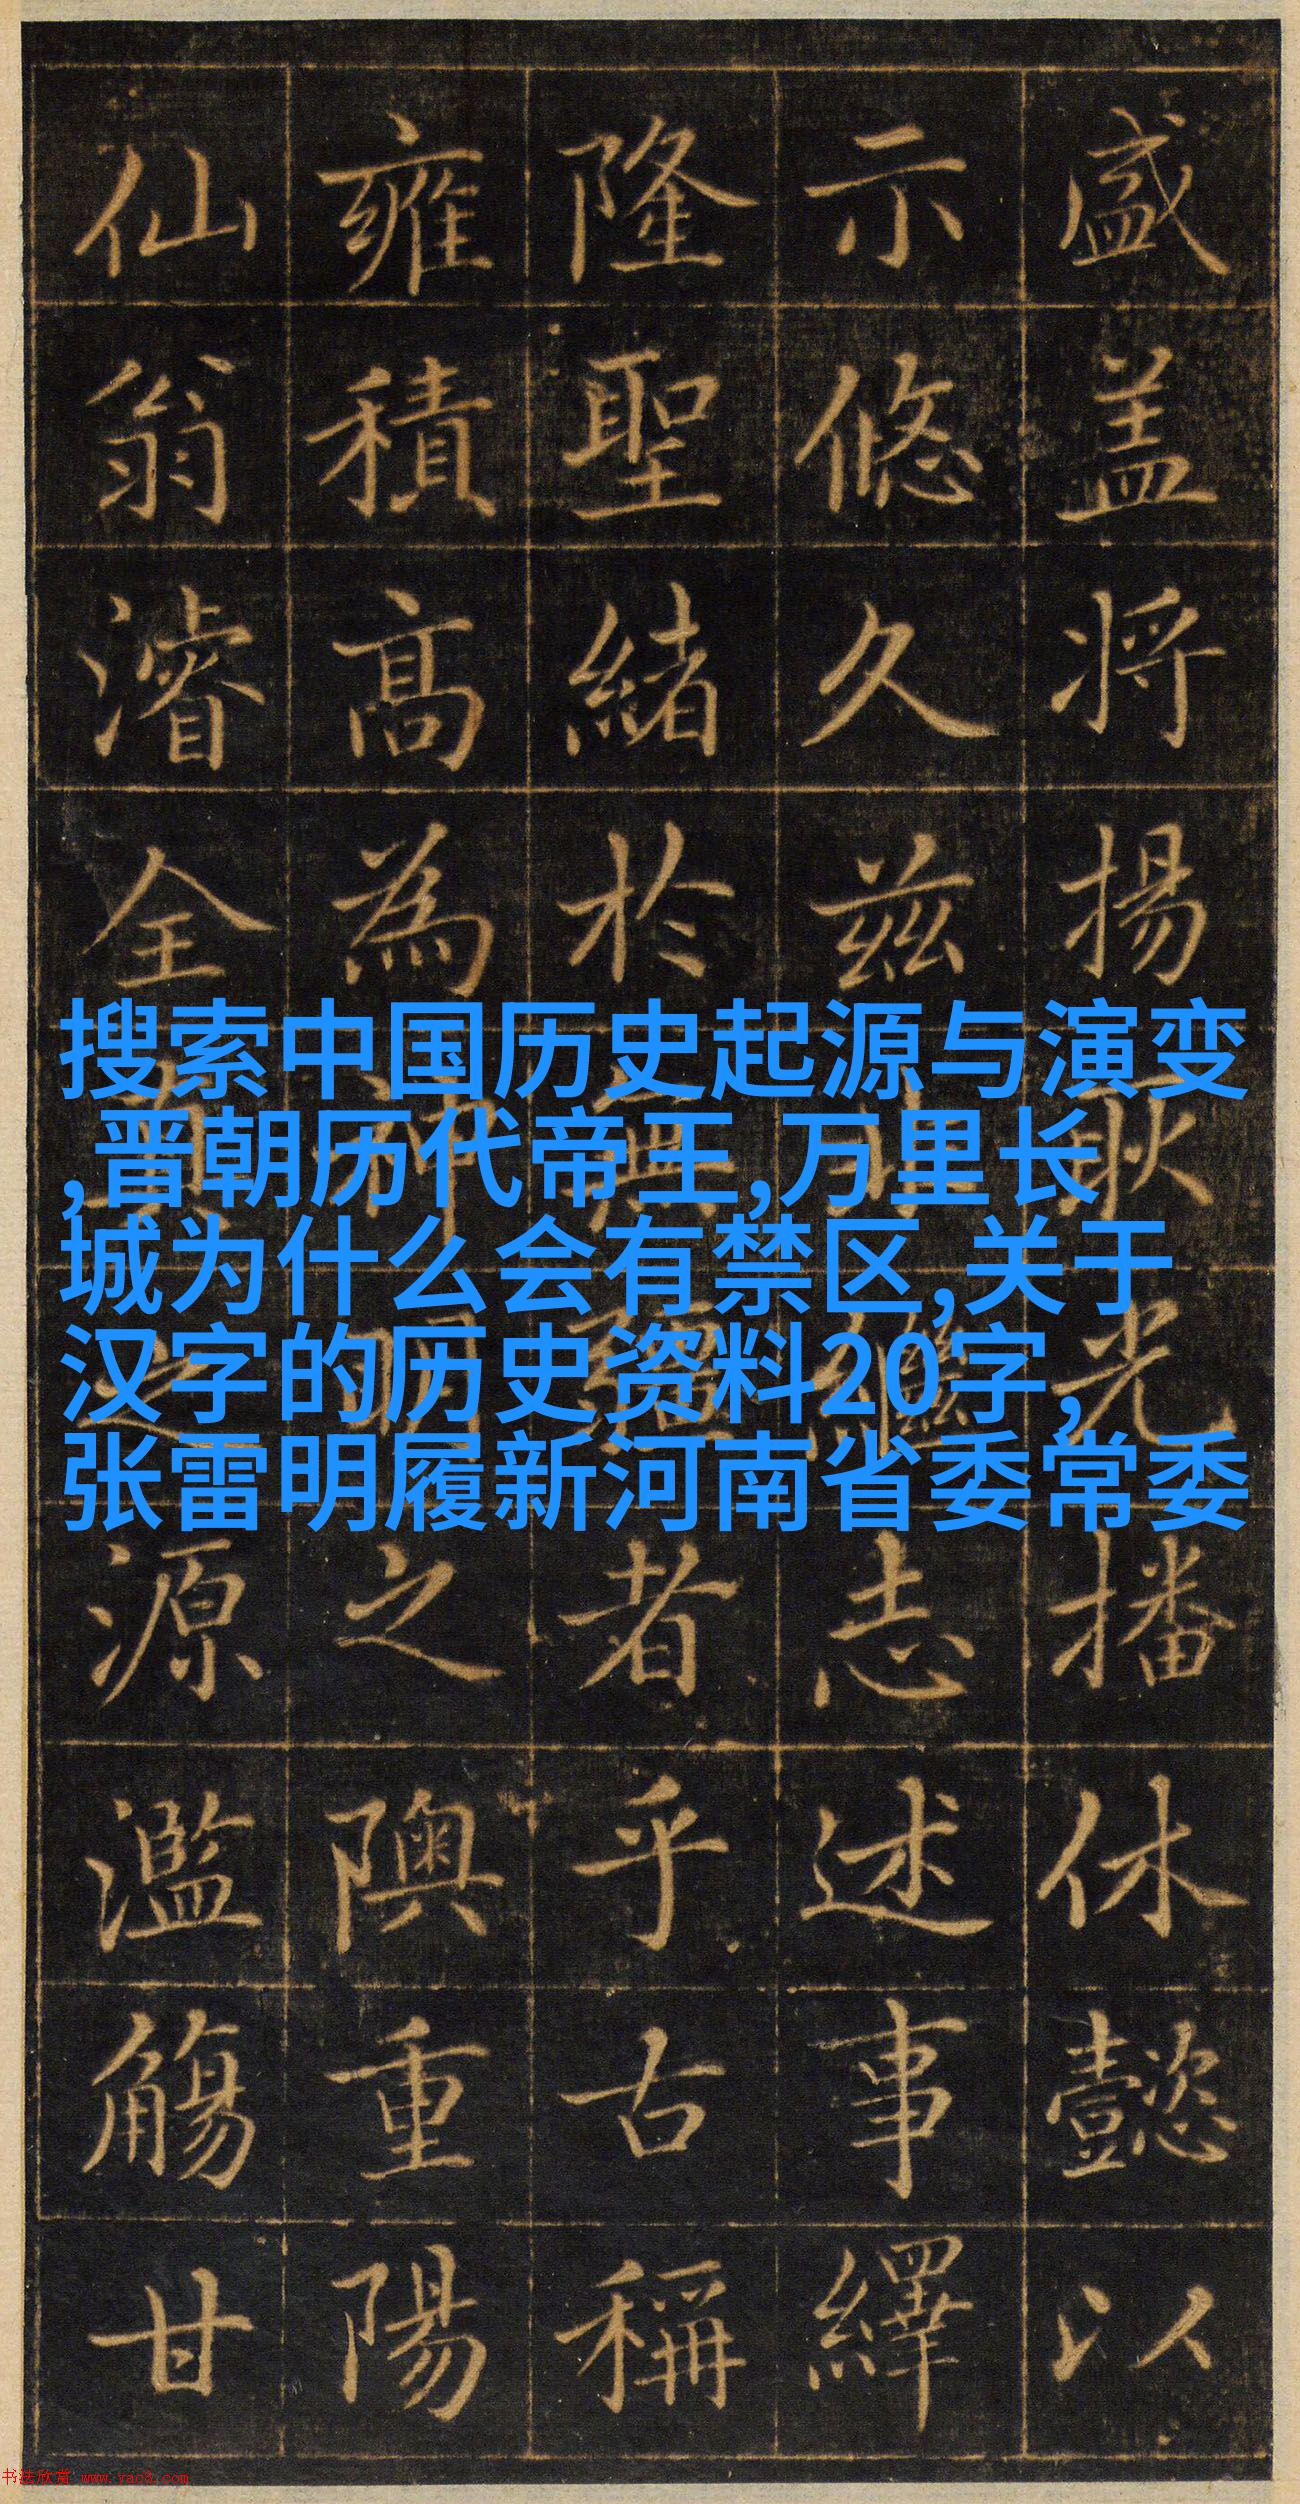 盛盖将揚耿光播休懿以
示悠久兹繼志述事繹
隆聖緒於無疆者乎古稱
雍積高為神明之隩重陽
仙翁濬全真之源濫觴甘
搜索中国历史起源与演变
,晋朝历代帝王,万里长
城为什么会有禁区,关于
汉字的历史资料20字,
张雷明履新河南省委常委
书法欣赏 www.yac8.com